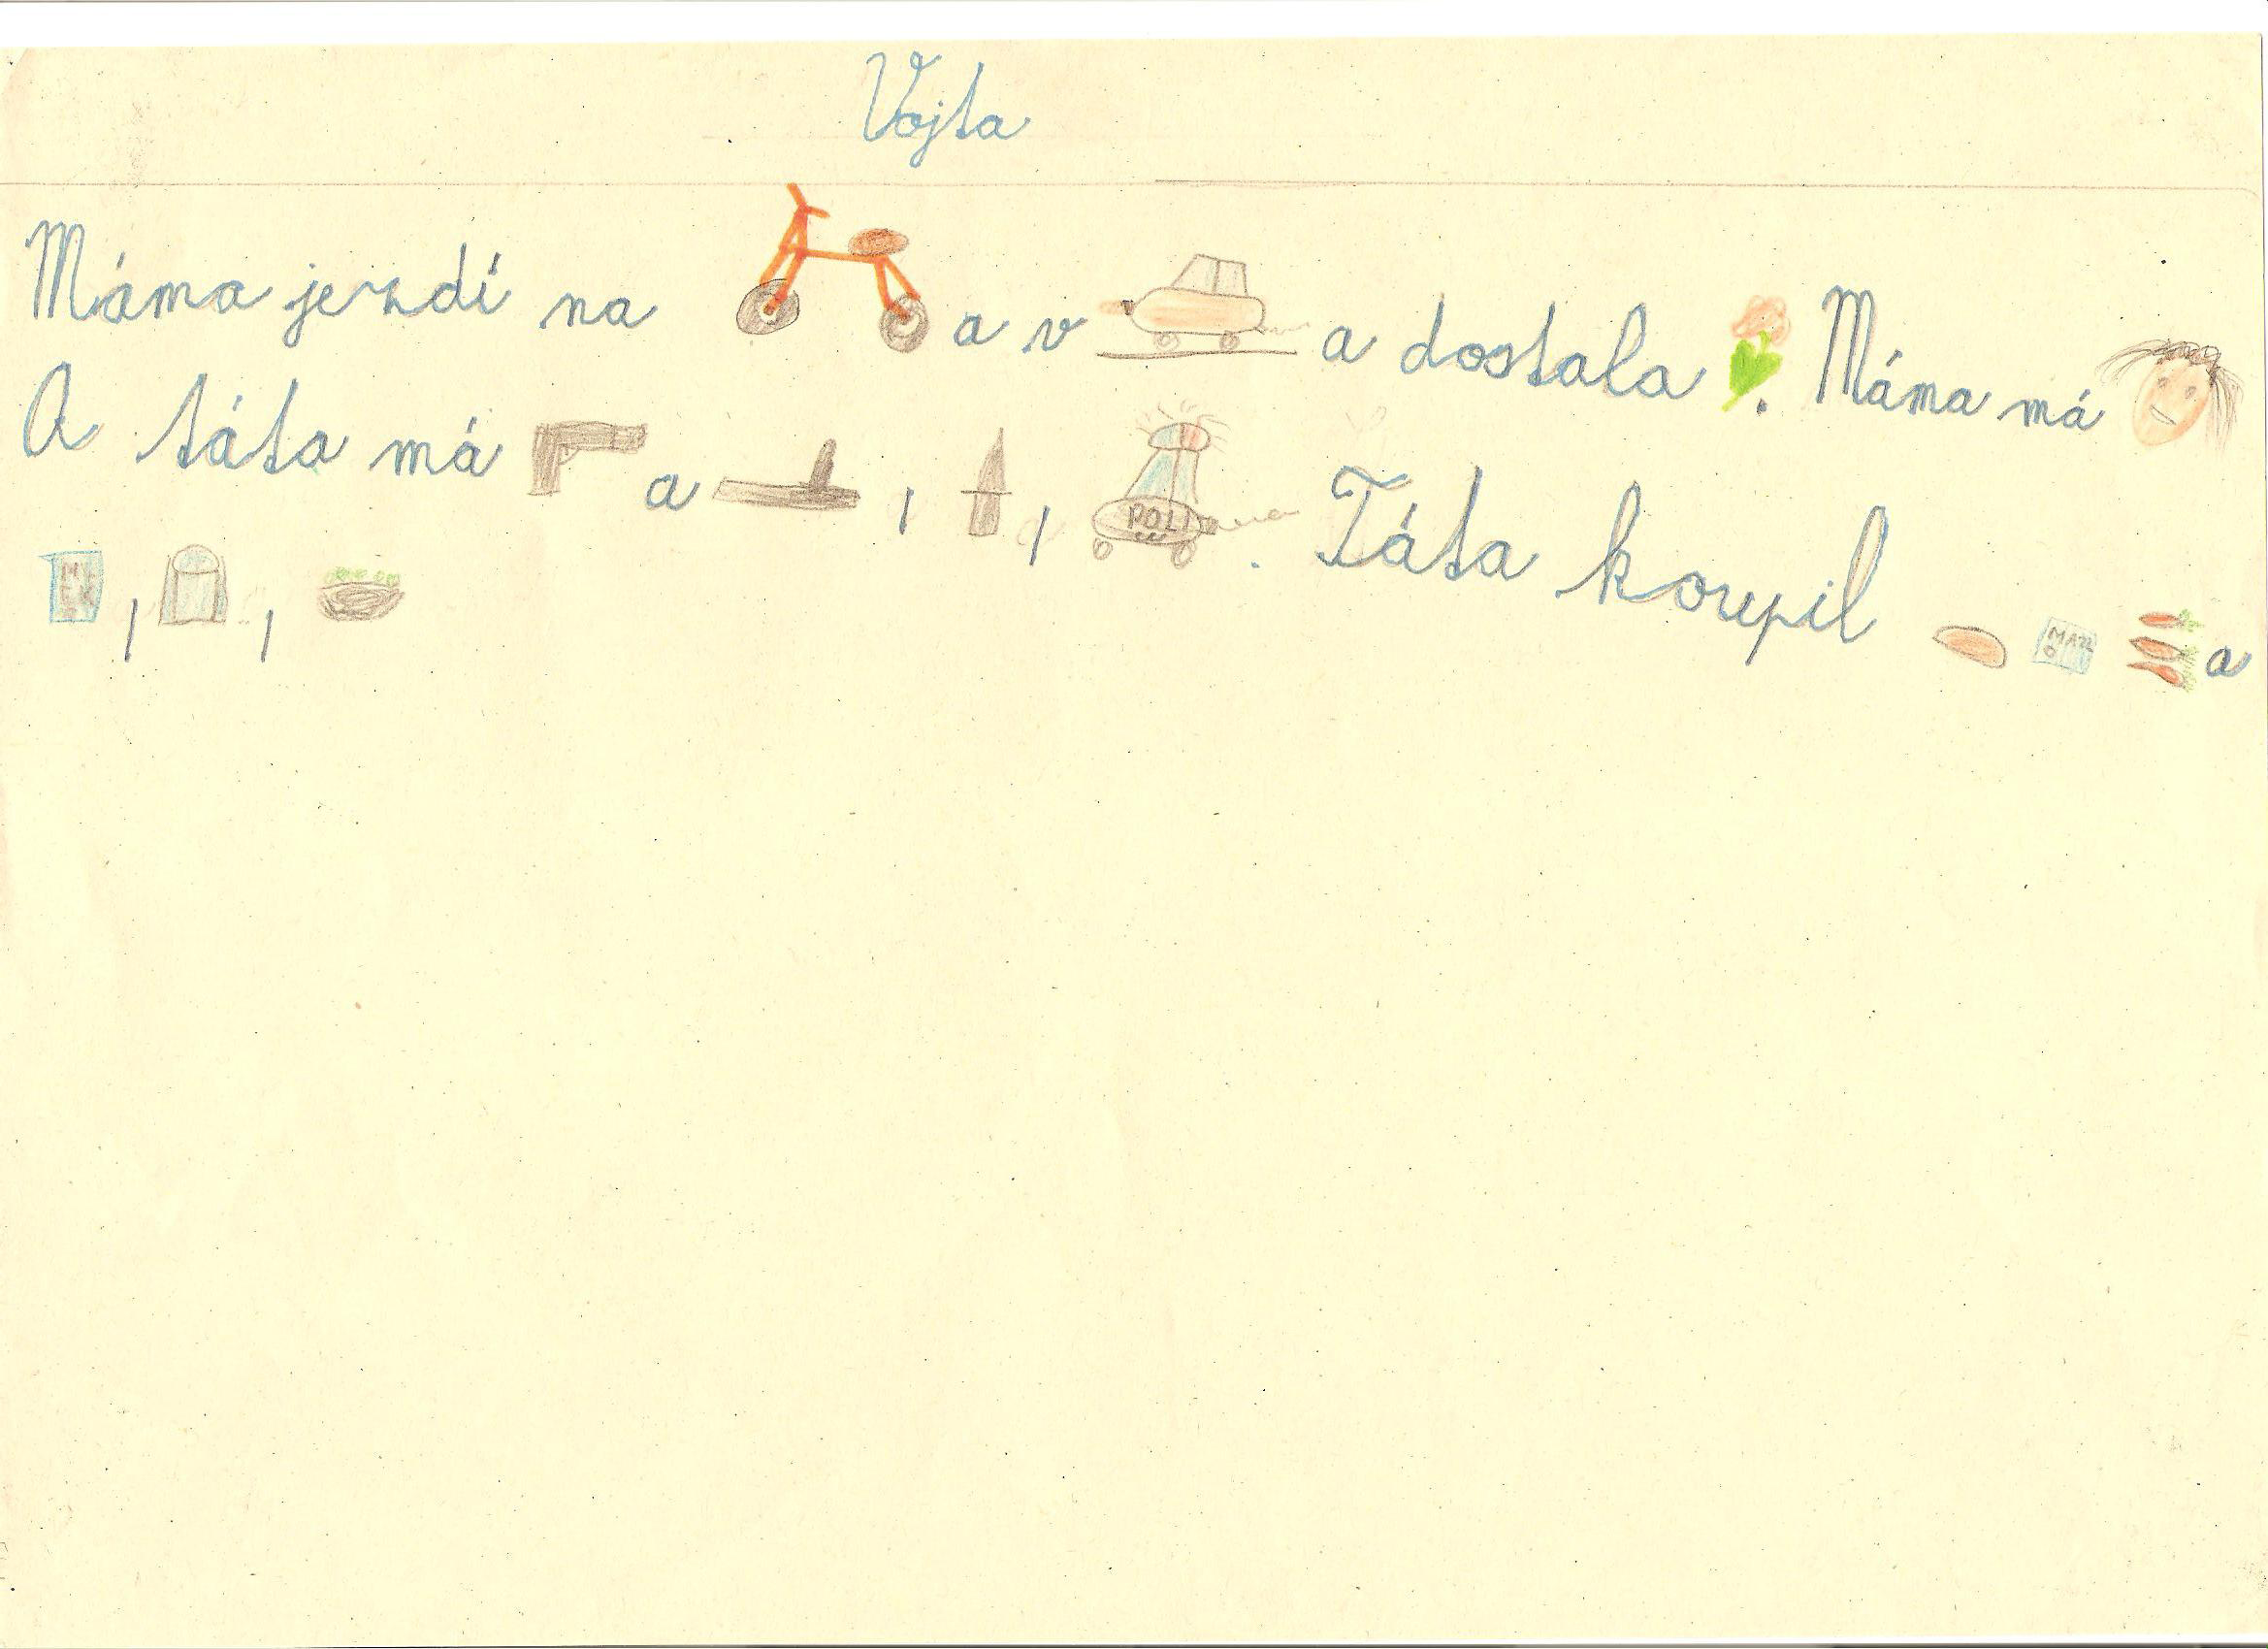 Vojta
Máma jezdí na a v a dostala . Máma má
A táta má a , , POLI .
Táta koupil MÁSLO a
MLÉKO , ,